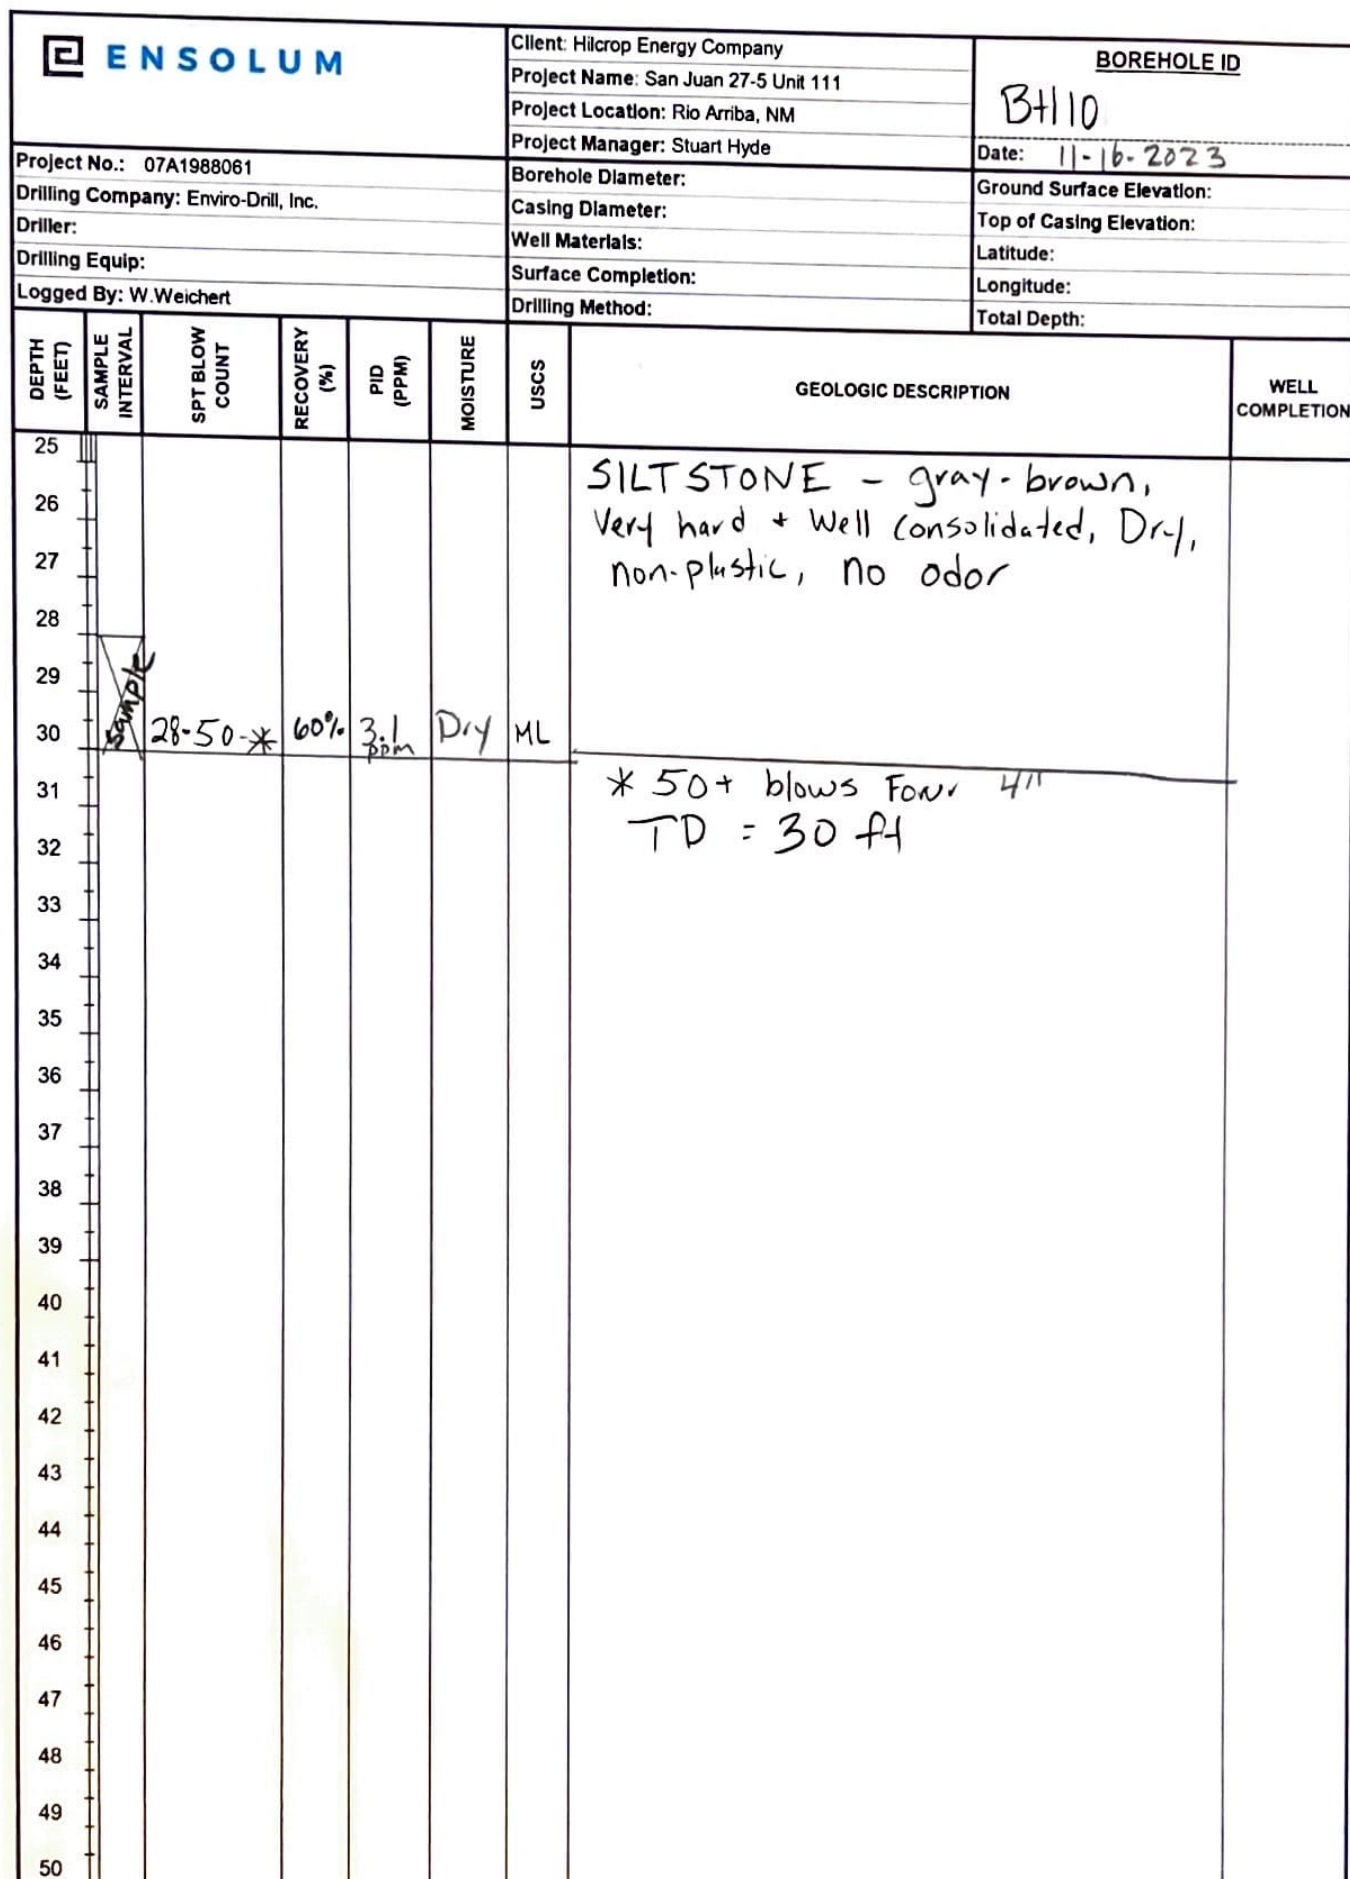 ENSOLUM
Client: Hilcrop Energy Company
Project Name: San Juan 27-5 Unit 111
Project Location: Rio Arriba, NM
Project Manager: Stuart Hyde
BOREHOLE ID
BH110
Date: 11-16-2023
Project No.: 07A1988061
Drilling Company: Enviro-Drill, Inc.
Driller:
Drilling Equip:
Logged By: W.Weichert
Borehole Diameter:
Casing Diameter:
Well Materials:
Surface Completion:
Drilling Method:
Ground Surface Elevation:
Top of Casing Elevation:
Latitude:
Longitude:
Total Depth:
DEPTH
(FEET)
SAMPLE
INTERVAL
SPT BLOW
COUNT
RECOVERY
(%)
PID
(PPM)
MOISTURE
USCS
GEOLOGIC DESCRIPTION
WELL
COMPLETION
25
SILTSTONE - gray-brown,
26
Very hard + Well Consolidated, Dry,
27
non-plastic, no odor
28
29
Sample
30 28-50-* 60% 3.1 ppm Dry ML
31
* 50+ blows 4"
32
TD = 30 ft
33
34
35
36
37
38
39
40
41
42
43
44
45
46
47
48
49
50